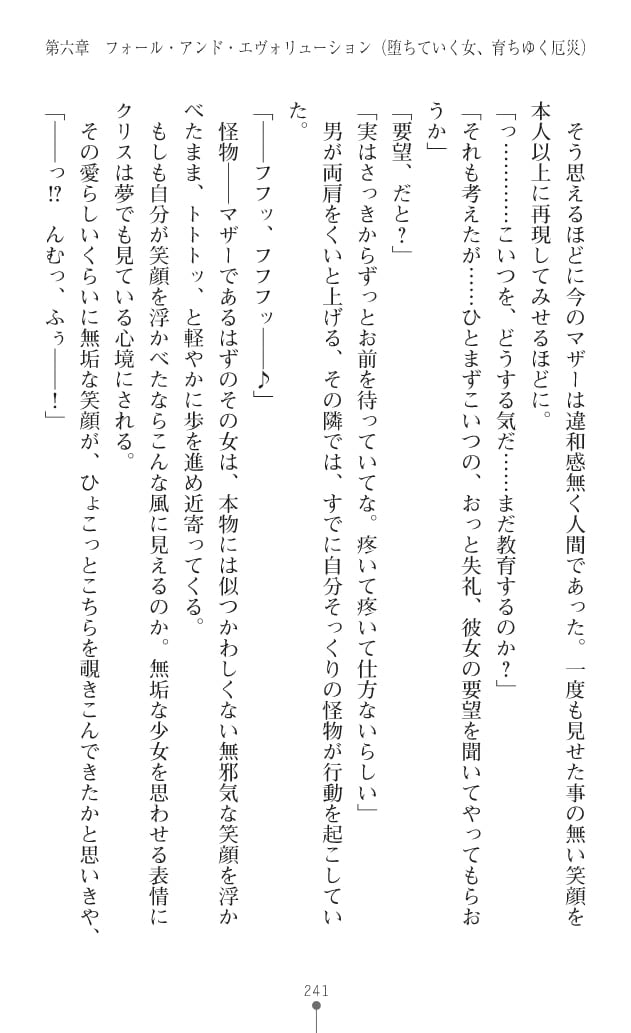 第六章　フォール・アンド・エヴォリューション（堕ちていく女、育ちゆく厄災）
　そう思えるほどに今のマザーは違和感無く人間であった。一度も見せた事の無い笑顔を
本人以上に再現してみせるほどに。
「っ…………こいつを、どうする気だ……まだ教育するのか？」
「それも考えたが……ひとまずこいつの、おっと失礼、彼女の要望を聞いてやってもらお
うか」
「要望、だと？」
「実はさっきからずっとお前を待っていてな。疼いて疼いて仕方ないらしい」
　男が両肩をくいと上げる、その隣では、すでに自分そっくりの怪物が行動を起こしてい
た。
「――フフッ、フフフッ――♪」
　怪物――マザーであるはずのその女は、本物には似つかわしくない無邪気な笑顔を浮か
べたまま、トトトッ、と軽やかに歩を進め近寄ってくる。
　もしも自分が笑顔を浮かべたならこんな風に見えるのか。無垢な少女を思わせる表情に
クリスは夢でも見ている心境にされる。
　その愛らしいくらいに無垢な笑顔が、ひょこっとこちらを覗きこんできたかと思いきや、
「――っ!?　んむっ、ふぅ――！」
241